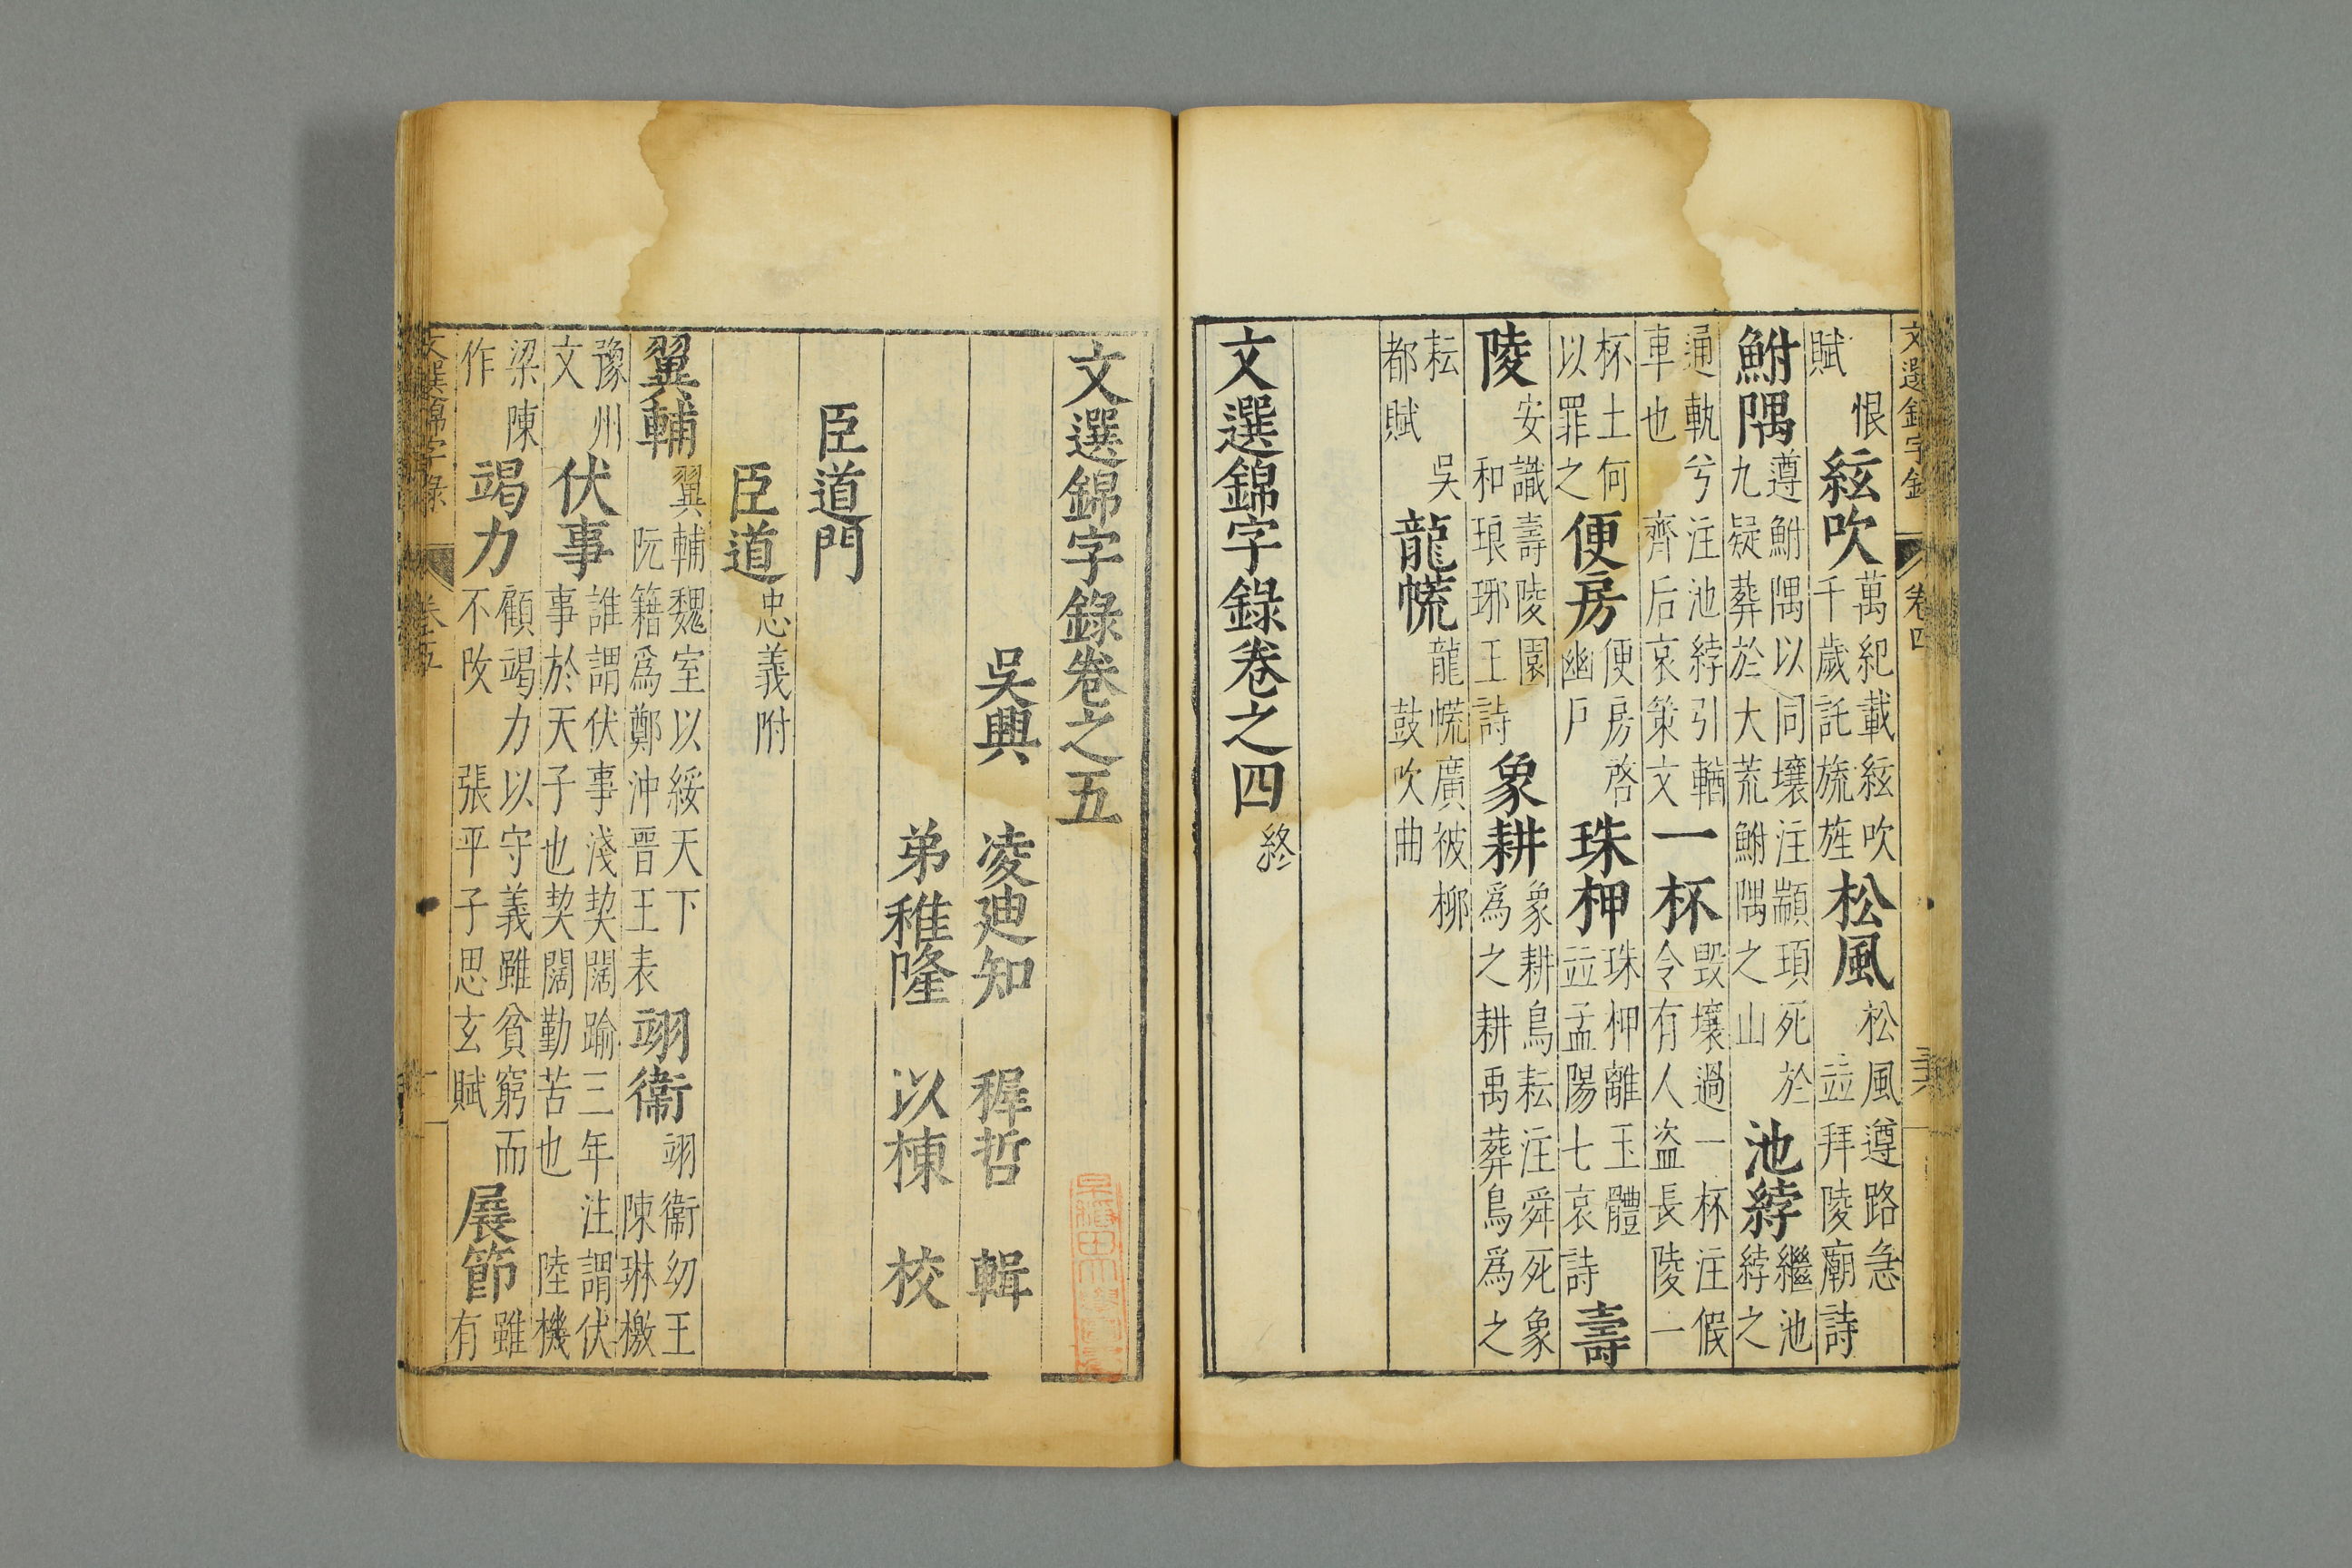 文選錦字錄 卷四
恨賦 絃吹 萬紀載絃吹千歲託旒旌 松風 松風遵路急並拜陵廟詩
鮒隅 遵鮒隅以同壤注顓頊死於九疑葬於大荒鮒隅之山 池綍 繼池綍之
通軌兮注池綍引輴車也齊后哀策文 一杯 毀壤過一杯注假令有人盜長陵一
杯土何以罪之 便房 便房啓幽戶 珠柙 珠柙離玉體並孟陽七哀詩 壽
陵 安識壽陵園和琅琊王詩 象耕 象耕鳥耘注舜死象爲之耕禹葬鳥爲之
耘吳都賦 龍㡆 龍㡆廣被柳鼓吹曲
文選錦字錄卷之四終
文選錦字錄卷之五
吳興 凌迪知 穉哲 輯
弟稚隆 以棟 校
臣道門
臣道 忠義附
翼輔 翼輔魏室以綏天下阮籍爲鄭沖晉王表 翊衞 翊衞幼王陳琳檄
豫州文 伏事 誰謂伏事淺契闊踰三年注謂伏事於天子也契闊勤苦也陸機
梁陳作 竭力 顧竭力以守義雖貧窮而不改張平子思玄賦 展節 雖有
文選錦字錄 卷五 一
早稻田大學圖書